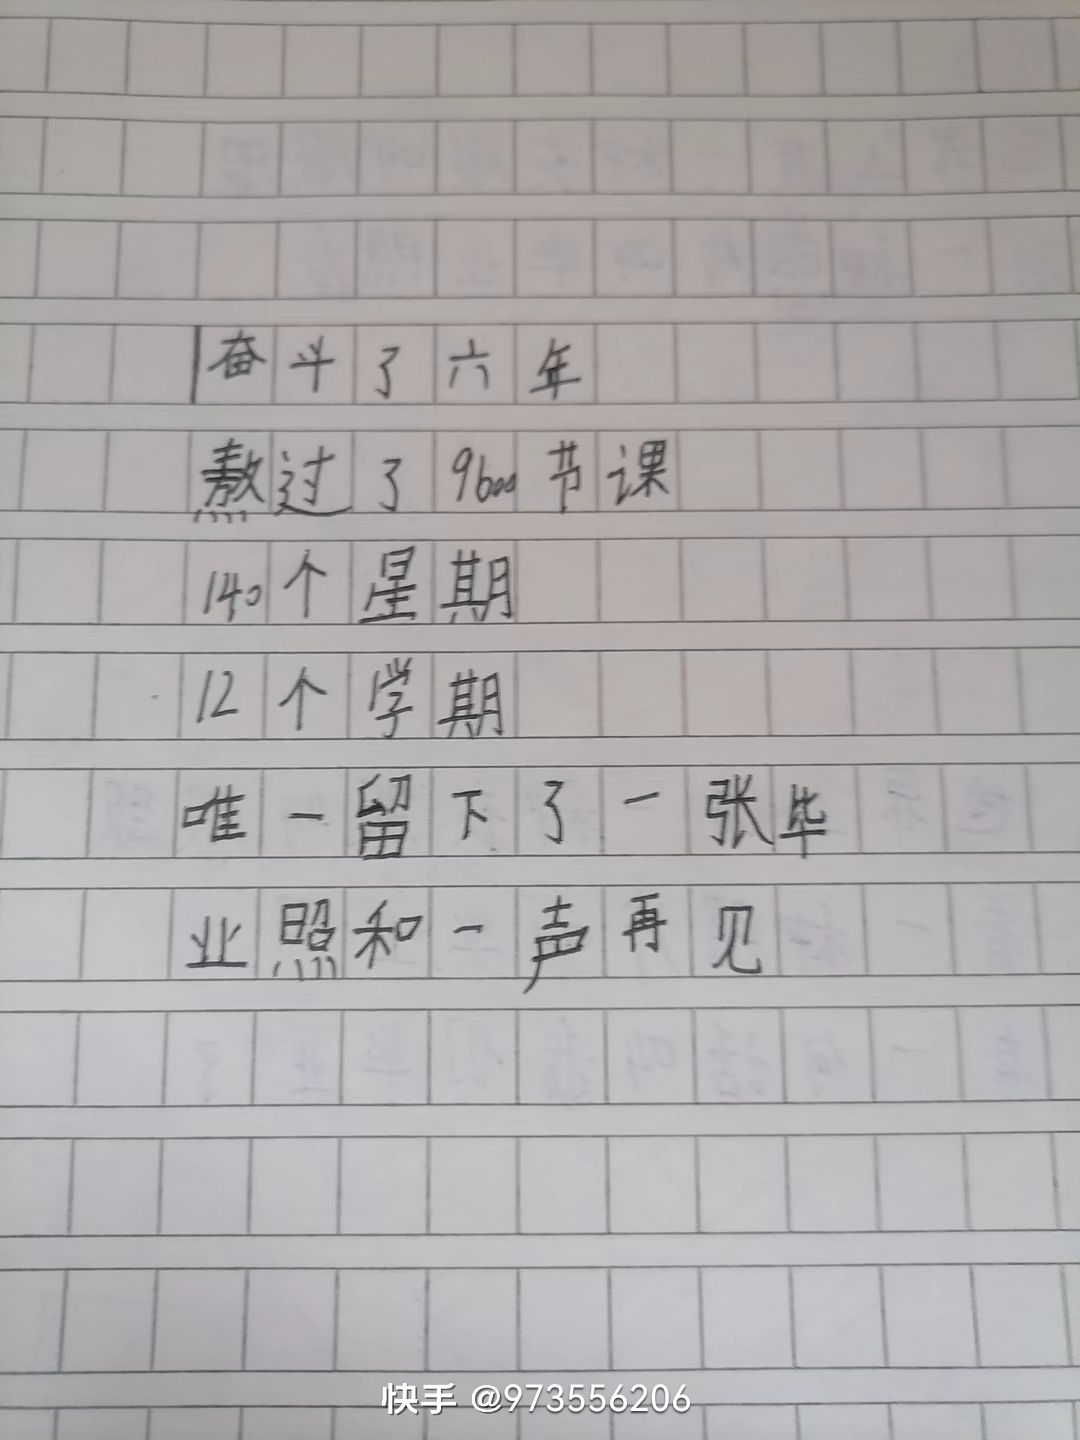 奋斗了六年
熬过了9600节课
140个星期
12个学期
唯一留下了一张毕
业照和一声再见
快手 @973556206